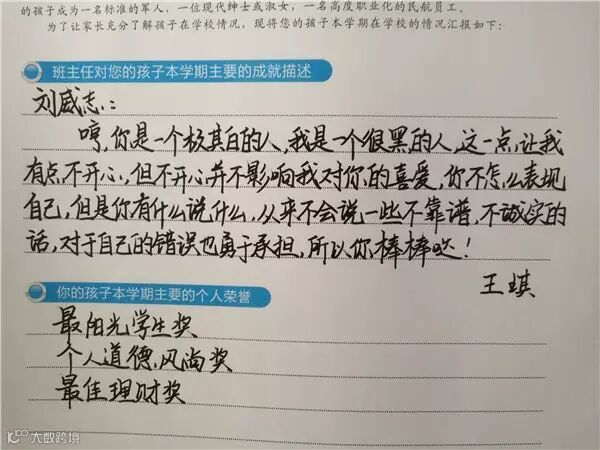 的孩子成为一名标准的军人，一位现代绅士或淑女，一名高度职业化的民航员工。
为了让家长充分了解孩子在学校情况，现将您的孩子本学期在学校的情况汇报如下：
班主任对您的孩子本学期主要的成就描述
刘威志：
哼，你是一个极其白的人，我是一个很黑的人，这一点，让我
有点不开心，但不开心并不影响我对你的喜爱，你不怎么表现
自己，但是你有什么说什么，从来不会说一些不靠谱，不诚实的
话，对于自己的错误也勇于承担，所以你棒棒哒！
王琪
你的孩子本学期主要的个人荣誉
最阳光学生奖
个人道德风尚奖
最佳理财奖
大数跨境